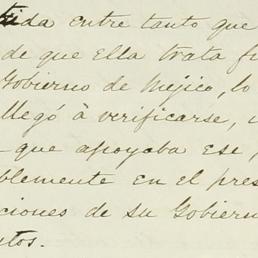 tida entre tanto que
de que ella trata f
Gobierno de Mejico, lo
llegó á verificarse,
que apoyaba ese,
blemente en el pres
ciones de su Gobiern
tos.